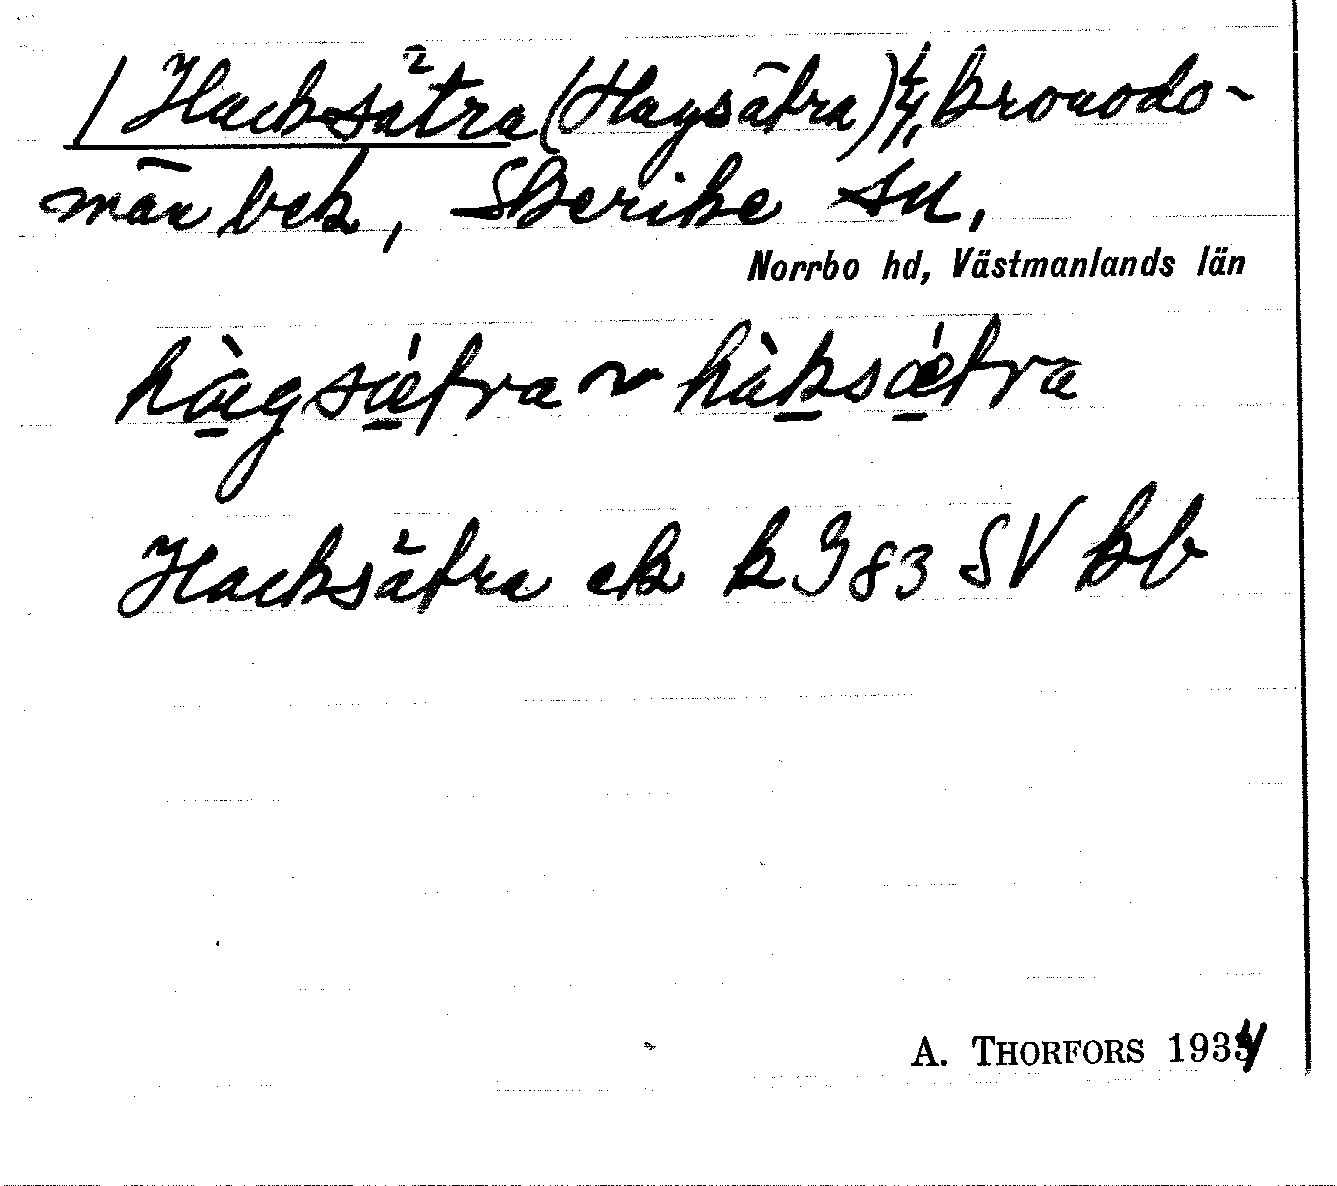 / Hacksätra (Hagsätra) 1/4, kronodo-
män bek, Skerike sn,
Norrbo hd, Västmanlands län
hàgsǽtra ~ hàksǽtra
Hacksätra ek k J 83 SV kb
A. THORFORS 1934